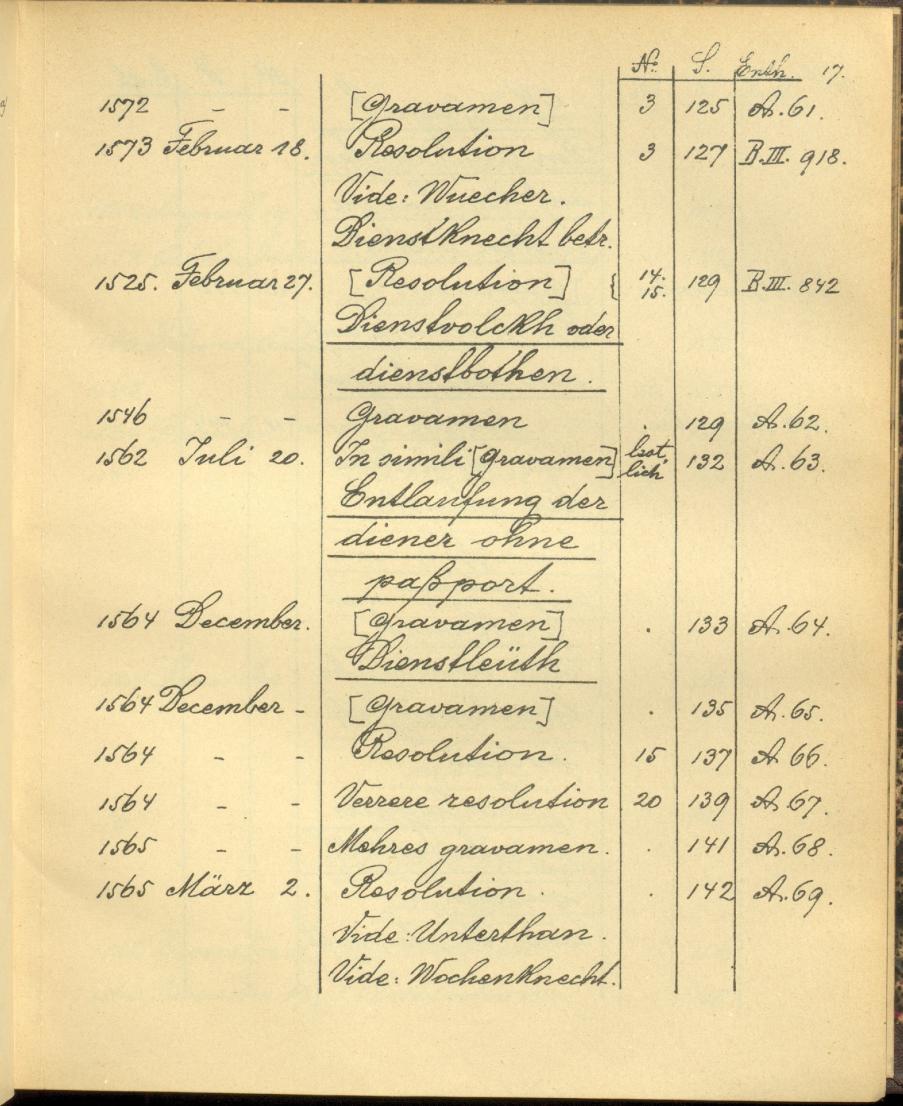 No. S. Enth. 17.
1572 - - [Gravamen] 3 125 A. 61.
1573 Februar 18. Resolution 3 127 B.III. 918.
Vide: Wuecher.
Dienstknecht betr.
1525. Februar 27. [Resolution] { 14. 15. 129 B.III. 842
Dienstvolckh oder
dienstbothen.
1546 - - Gravamen . 129 A. 62.
1562 Juli 20. In simili [Gravamen] lich 132 A. 63.
Entlaufung der
diener ohne
paßport.
1564 December. [Gravamen] . 133 A. 64.
Dienstleüth
1564 December - [Gravamen] . 135 A. 65.
1564 - - Resolution. 15 137 A. 66.
1564 - - Verrere resolution 20 139 A. 67.
1565 - - Mehres gravamen. . 141 A. 68.
1565 März 2. Resolution. . 142 A. 69.
Vide: Unterthan.
Vide: Wochenknecht.